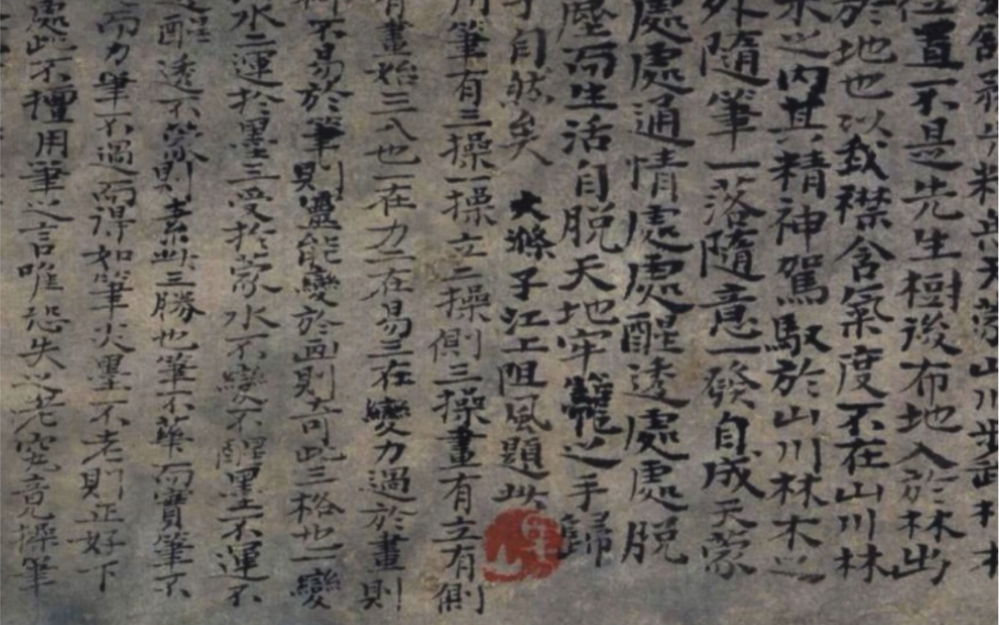 山川步武林木
位置不是先生樹後布地入於林出
於地也以我襟含氣度不在山川林
木之內其精神駕馭於山川林木之
外隨筆一落隨意一發自成天蒙
處處通情處處醒透處處脫
塵而生活自脫天地牢籠之手歸
于自然矣 大滌子江上阻風題此
用筆有三操一操立二操側三操畫有立有側
有畫始三入也一在力二在易三在變力過於畫則
神不易於筆則靈能變於画則奇此三格也一變
水二運於墨三受於蒙水不變不醒墨不運不
醒透不蒙則素此三勝也筆不華而實筆不
而力筆不過而得如筆尖墨不老則正好下
處此不擅用筆之言唯恐失之老究竟操筆